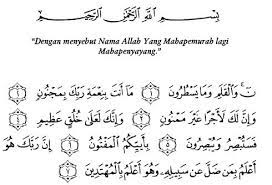 بِسْمِ اللَّهِ الرَّحْمَٰنِ الرَّحِيمِ
"Dengan menyebut Nama Allah Yang Mahapemurah lagi
Mahapenyayang."
نۤ ۚ وَالْقَلَمِ وَمَا يَسْطُرُونَ ۝١ مَا أَنتَ بِنِعْمَةِ رَبِّكَ بِمَجْنُونٍ
۝٢ وَإِنَّ لَكَ لَأَجْرًا غَيْرَ مَمْنُونٍ ۝٣ وَإِنَّكَ لَعَلَىٰ خُلُقٍ عَظِيمٍ ۝٤
فَسَتُبْصِرُ وَيُبْصِرُونَ ۝٥ بِأَييِّكُمُ الْمَفْتُونُ ۝٦ إِنَّ رَبَّكَ هُوَ
أَعْلَمُ بِمَن ضَلَّ عَن سَبِيلِهِ وَهُوَ أَعْلَمُ بِالْمُهْتَدِينَ ۝٧